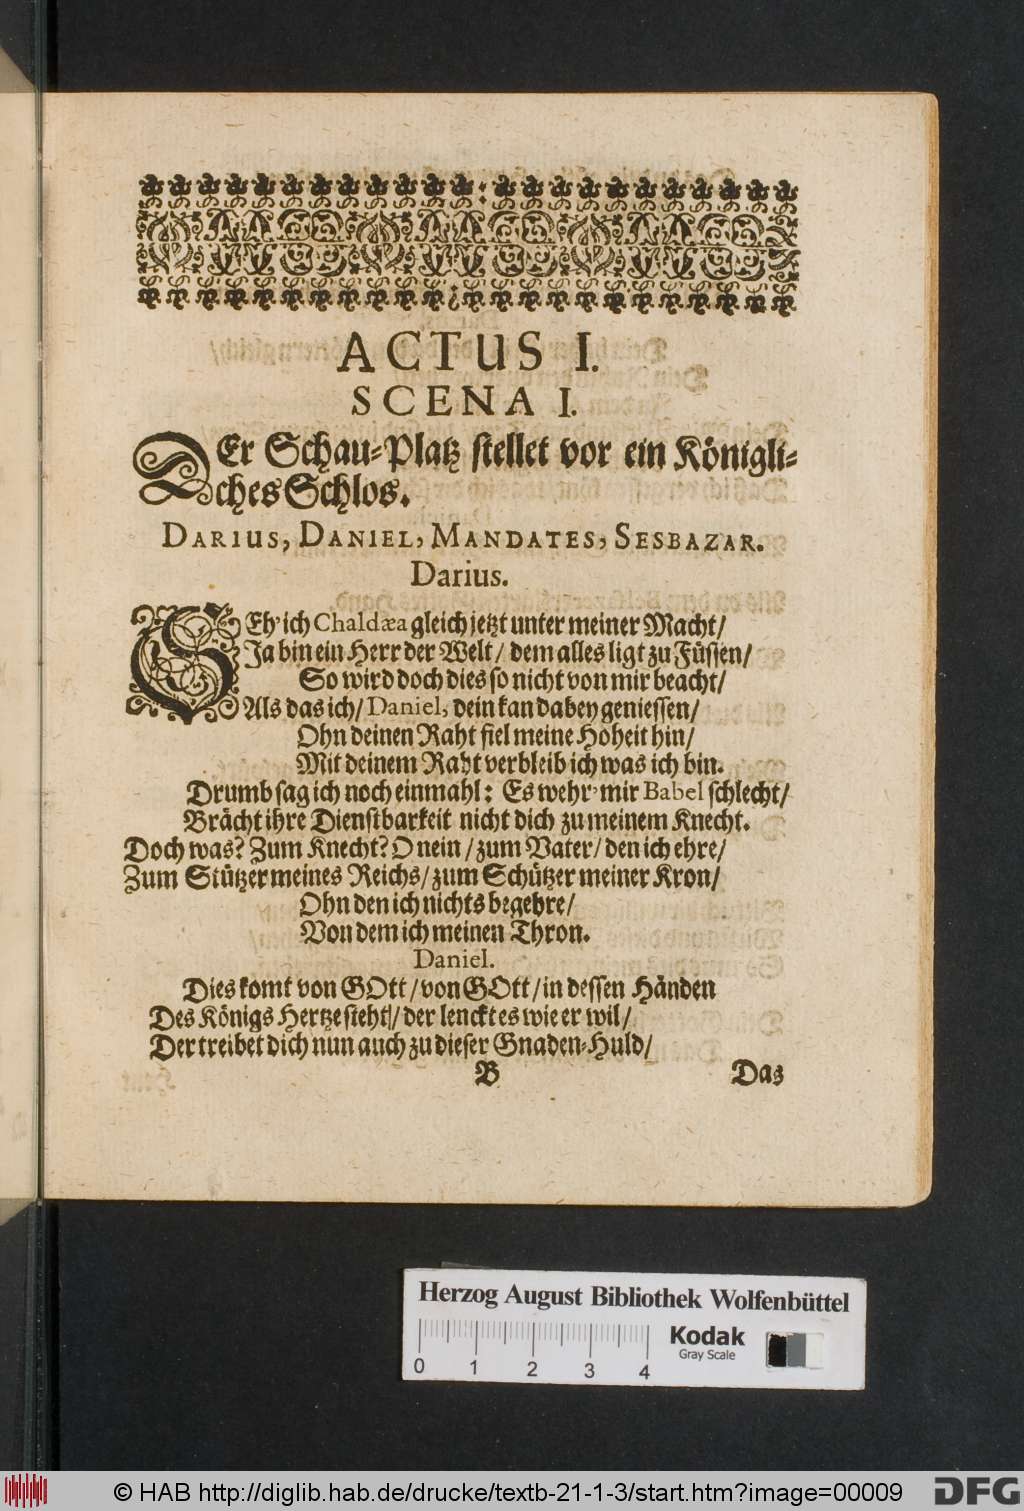 ACTUS I.
SCENA I.
DEr Schau-Platz stellet vor ein Königli-
ches Schlos.
DARIUS, DANIEL, MANDATES, SESBAZAR.
Darius.
SEh' ich Chaldæa gleich jetzt unter meiner Macht/
Ja bin ein Herr der Welt/ dem alles ligt zu Füssen/
So wird doch dies so nicht von mir beacht/
Als das ich/ Daniel, dein kan dabey geniessen/
Ohn deinen Raht fiel meine Hoheit hin/
Mit deinem Raht verbleib ich was ich bin.
Drumb sag ich noch einmahl: Es wehr' mir Babel schlecht/
Brächt ihre Dienstbarkeit nicht dich zu meinem Knecht.
Doch was? Zum Knecht? O nein/ zum Vater/ den ich ehre/
Zum Stützer meines Reichs/ zum Schützer meiner Kron/
Ohn den ich nichts begehre/
Von dem ich meinen Thron.
Daniel.
Dies komt von GOtt/ von GOtt/ in dessen Händen
Des Königs Hertze steht/ der lenckt es wie er wil/
Der treibet dich nun auch zu dieser Gnaden-Huld/
B Das
Herzog August Bibliothek Wolfenbüttel
Kodak
Gray Scale
0 1 2 3 4
© HAB http://diglib.hab.de/drucke/textb-21-1-3/start.htm?image=00009
DFG